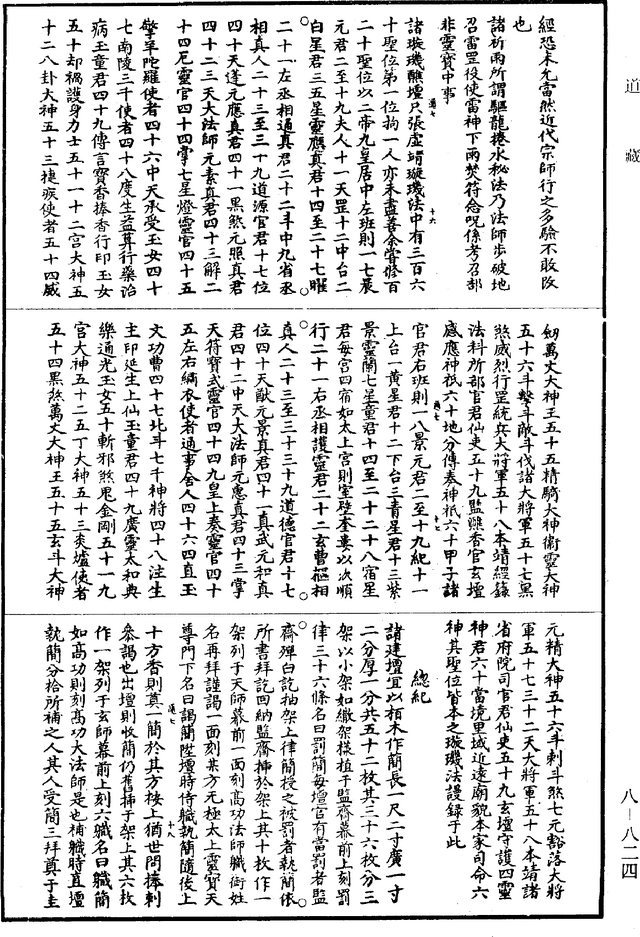 經恐未允當然近代宗師行之多驗不敢改
也
諸祈雨所謂驅龍捲水秘法乃法師步破地
召雷罡役使雷神下雨焚符念呪係考召部
非靈寶中事
諸璇璣醮壇只張虛靖璇璣法中有三百六
十聖位第一位拘一人亦未盡善余嘗修百
二十聖位以二帝九皇居中左班則一七晨
元君二至十九夫人十一天罡十二中台二
白星君三五星靈應真君十四至二十七曜
二十一左丞相通真君二十二斗中九省丞
相真人二十三至三十九道源官君十七位
四十天蓬元應真君四十一黑煞元照真君
四十二三天大法師元素真君四十三解二
十四厄靈官四十四掌七星燈靈官四十五
擎羊陀羅使者四十六中天承受玉女四十
七南陵三千使者四十八度生益筭行藥治
病玉童君四十九傳言寶香捧香行印玉女
五十却禍護身力士五十一十二宮大神五
十二八卦大神五十三捷疾使者五十四威
劒萬丈大神王五十五精騎大神衛靈大神
五十六斗擊斗敵斗伐諸大將軍五十七黑
煞威烈行罡統兵大將軍五十八本靖經籙
法科所部官君仙吏五十九監醮香官玄壇
感應神祇六十地分傳奏神祇六十甲子諸
官君右班則一八景元君二至十九紀十一
上台一黃星君十二下台三青星君十三紫
景靈蘭七星童君十四至二十二十八宿星
君每宮四宿如太上宮則室壁奎婁以次順
行二十一右丞相護靈君二十二玄曹樞相
真人二十三至三十三十九道德官君十七
位四十天猷元景真君四十一真武元和真
君四十二中天大法師元惠真君四十三掌
天符寶式靈官四十四九皇上奏靈官四十
五左右纏衣使者通事舍人四十六四直玉
文功曹四十七北斗七千神將四十八注生
主印延生上仙玉童君四十九廣靈太和典
樂通光玉女五十斬邪煞鬼金剛五十一九
宮大神五十二五丁大神五十三夾爐使者
五十四黑煞萬丈大神王五十五玄斗大神
元精大神五十六斗刺斗煞七元豁落大將
軍五十七三十二天大將軍五十八本靖諸
省府院司官君仙吏五十九玄壇守護四靈
神君六十當境里域近遠廟貌本家司命六
神其聖位皆本之璇璣法謾録于此
總紀
諸建壇宜以栢木作簡長一尺二寸廣一寸
二分厚一分共五十二枚其三十六枚分三
架以小架如繳架樣植于監齋幕前上刻罰
律三十六條名曰罰簡每壇官有當罰者監
齋彈白訖抽架上律簡授之被罰者執簡依
所書拜訖回納監齋揷於架上其十枚作一
架列于天師幕前一面刻高功法師職銜姓
名再拜謹謁一面刻某方元極太上靈寶天
尊門下名曰謁簡陞壇時侍職執簡隨後上
十方香則真一簡於其方桉上猶世間捧刺
叅謁也出壇則收簡仍舊揷于架上其六枚
作一架列于玄師幕前上刻六職名曰職簡
如高功則刻高功大法師是也補職時直壇
執簡分拾所補之人其人受簡三拜奠于圭
道藏
八—八二四